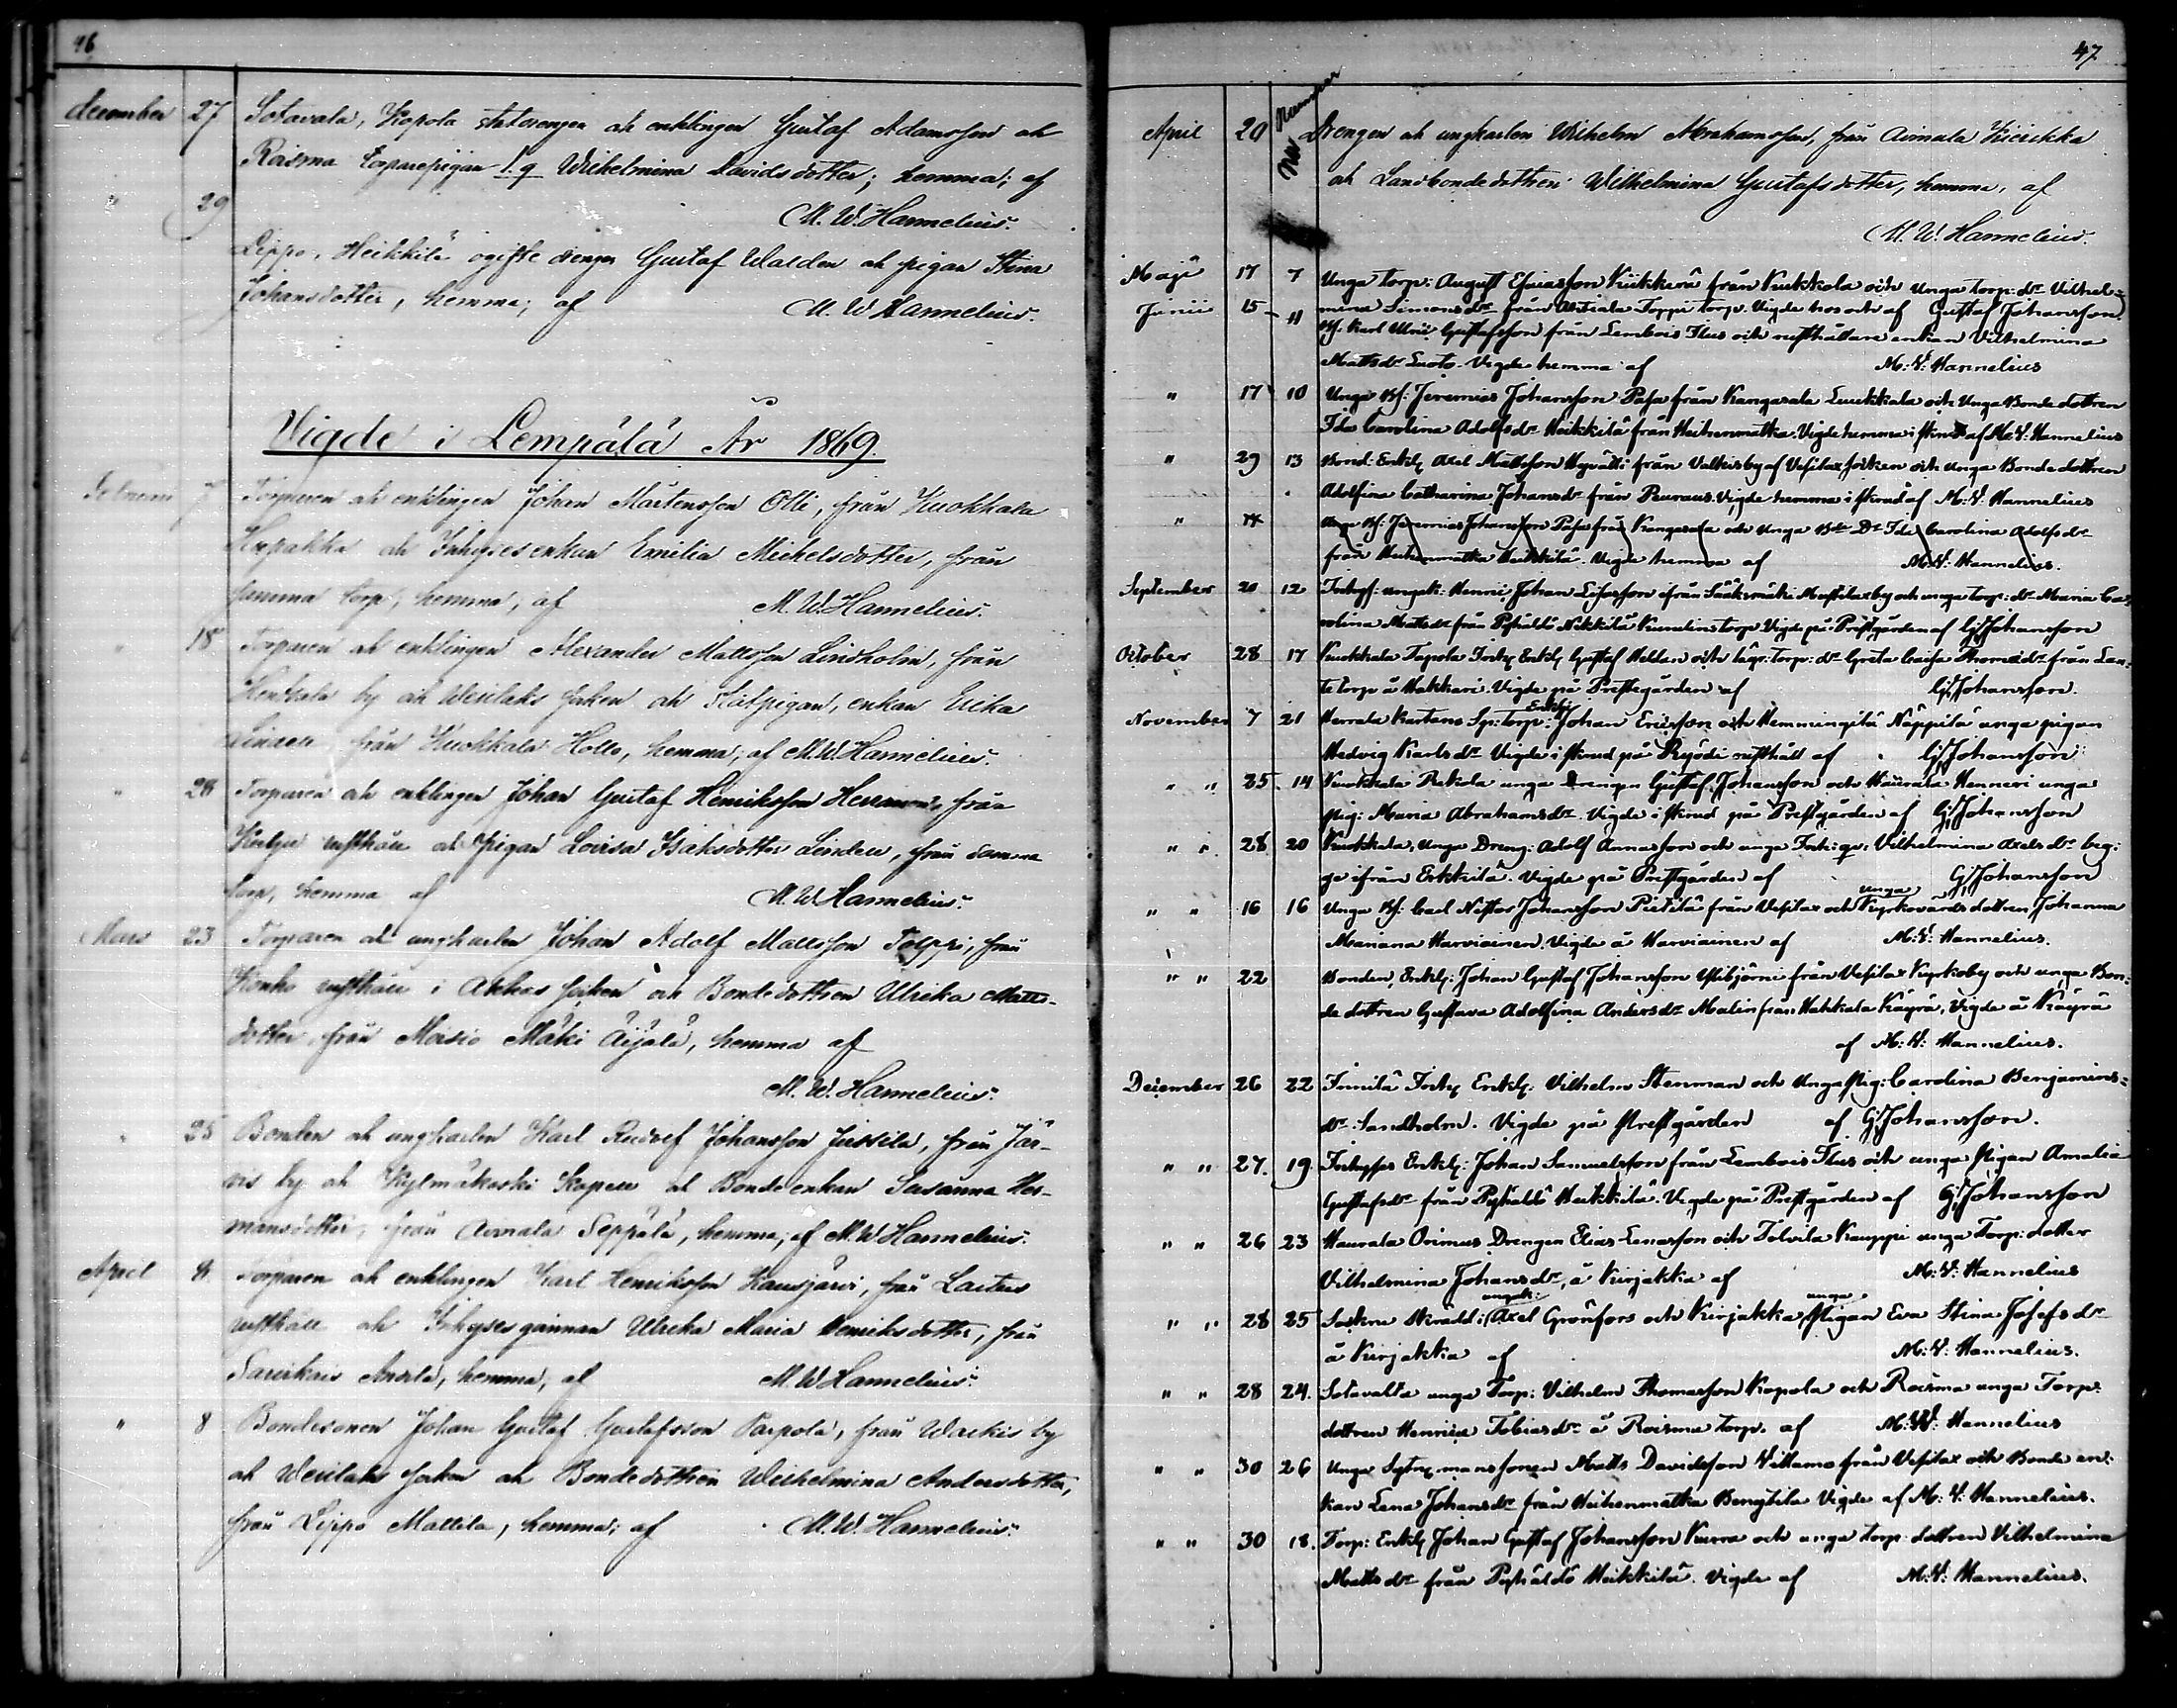 46
december 27 Sotavala, Kopola statdrengen och enklingen Gustaf Adamsson och
Roisma torparepigan l. q Wilhelmina Davidsdotter; hemma; af
" 29 M. W. Hannelius.
Lippo, Heikkilä ogifte drengen Gustaf Walden och pigan Stina
Johansdotter, hemma; af M. W. Hannelius.
Vigde i Lempälä År 1869.
7 Torparen och enklingen Johan Mårtensson Olli, från Kuokkala
och Inhyses enkan Emilia Michelsdotter, från
samma torp, hemma, af M. W. Hannelius.
" 18 Torparen och enklingen Alexander Mattsson Lindholm, från
by och Wesilaks socken och enkan Erika
från Kuokkala Hollo, hemma, af M. W. Hannelius.
" 28 Torparen och enklingen Johan Gustaf Henriksson från
rusthåll och pigan Lovisa Isaksdotter Linden, från samma
torp, hemma af M. W. Hannelius.
Mars 23 Torparen och ungkarlen Johan Adolf Mattsson Tolppi, från
Konho rusthåll i Akkas socken och Bondedottren Ulrika Matts-
dotter från Moisio Mäki Äijälä, hemma af
M. W. Hannelius.
" 25 Bonden och ungkarlen Karl Rudolf Johansson Jussila, från Jär-
vis by och Kylmäkoski Kapell och Bondeenkan Susanna Her-
mansdotter, från Aimala Seppälä, hemma, af M. W. Hannelius.
April 8. Torparen och enklingen Karl Henriksson Kausjärvi, från
rusthåll och Inhysesqvinnan Ulrika Maria Henriksdotter, från
Saurikais Anola, hemma, af M. W. Hannelius.
" 8 Bondesonen Johan Gustaf Gustafsson Parpola, från Wackis by
och Wesilaks socken och Bondedottren Wilhelmina Andersdotter,
från Lippo Mattila, hemma; af M. W. Hannelius.
47
Nummer
April 20 Drengen och ungkarlen Wilhelm Abrahamsson, från Aimala Kieikka
och Landbondedottren Wilhelmina Gustafsdotter, hemma, af
M. W. Hannelius.
Maji 17 7 Unga torp: August Esaiasson Kiikkerä från Kuokkola och Unga torp: dr Vilhel-
Junii 15 11 mina Simonsdr från Ahtiala Toppi torp. Vigde hos och af Gustaf Johansson.
Bf. Karl Ulric Gustafsson från Lembois Ilus och rusthållare enkan Vilhelmina
Mattsdr Luoto. Vigde hemma af M: V: Hannelius
" 17 10 Unga Bf: Jeremias Johansson Pasa från Kangasala Liukkala och Unga Bonde dottren
Ida Carolina Adolfsdr Heikkilä från Heitenmatka. Vigde hemma i skrud af M: V: Hannelius
" 29 13 Bond: Enkl: Axel Mattsson Hyvätti från Valkisby af Vesilax socken och Unga Bonde dottren
Adolfina Catharina Johansdr från Peuraus. Vigde hemma i skrud af M: V: Hannelius
" 17 Unga Bf: Jeremias Johansson Pasa från Kangasala och Unga Bde Dr Ida Carolina Adolfsdr
från Heitenmatka Heikkilä. Vigde hemma af M: V: Hannelius.
September 20 12 Inhys: ungk: Henric Johan Esaisson ifrån Sääksmäki by och unga torp: dr Maria Ca-
rolina Mattsdr från Pyhältö Nikkilä Kumelins torp Vigde på Prestgården af G: Johansson
October 28 17 Kuokkala Tapola Inhy Enkl: Gustaf Helden och lägr. torp: dr Greta Caisa Thomasdr från Lau-
te torp å Hakkari. Vigde på Prestegården af G: Johansson.
November 7 21 Herrala Kartano Sp: torp: Enkl: Johan Ericsson och Hemmingilä Näppilä unga pigan
Hedvig Karlsdr Vigde i skrud på Ryödi rusthåll af G: Johansson
" " 25 14 Kuokkala Rekola unga Drengen Gustaf Johansson och Haurala Hanneri unga
pig: Maria Abrahamsdr Vigde i skrud på Prestgården af G: Johansson
" " 28 20 Kuokkala, unga Dreng: Adolf Annasson och unga Inh: qv: Vilhelmina Axels dr beg:
ge ifrån Erkkilä. Vigde på Prestgården af G: Johansson
" " 16 16 Unga Bf: Carl Nestor Johansson Pietilä från Vesilax och unga Kyrkovärds dottren Johanna
Mariana Harviainen. Vigde å Harviainen af M: V: Hannelius.
" " 22 Bonden, Enkl: Johan Gustaf Johansson Ylibjörni från Vesilax Kyrkoby och unga Bon-
de dottren Gustava Adolfina Andersdr Malin från Hakkala Käyrä, Vigde å Käyrä
af M: V: Hannelius.
December 26 22 Innilä Inhy Enkl: Vilhelm Stenman och Unga Pig: Carolina Benjamins-
dr Sandholm. Vigde på Prestgården af G: Johansson.
" " 27. 19. Inhyses Enkl: Johan Samuelsson från Lembois Ilus och unga Pigan Amalia
Gustafsdr från Pyhältö Heikkilä. Vigde på Prestgården af G: Johansson
" " 26 23 Haurala Orimus Drengen Elias Lenasson och Tolvila Kauppi unga Torp: dotter
Vilhelmina Johansdr, å Kirjakka af M: V: Hannelius
" " 28 25 Sockne Skrädd: ungk: Axel Grönfors och Kirjakka unga Pigan Eva Stina Josefs dr
å Kirjakka af M: V: Hannelius.
" " 28 24. Sotavalta unga Torp: Vilhelm Thomasson Kopola och Roisma unga Torp:
dottren Henrica Tobiasdr å Roisma torp. af M: W: Hannelius
" " 30 26 Unga manssonen Matts Davidsson Villamo från Vesilax och Bonde en-
kan Lena Johansdr från Heitenmatka Bengtila Vigde af M: V: Hannelius.
" " 30 18. Torp: Enkl Johan Gustaf Johansson Kurra och unga torp. dottren Vilhelmina
Matts dr från Pyhältö Heikkilä. Vigde af M: V: Hannelius.